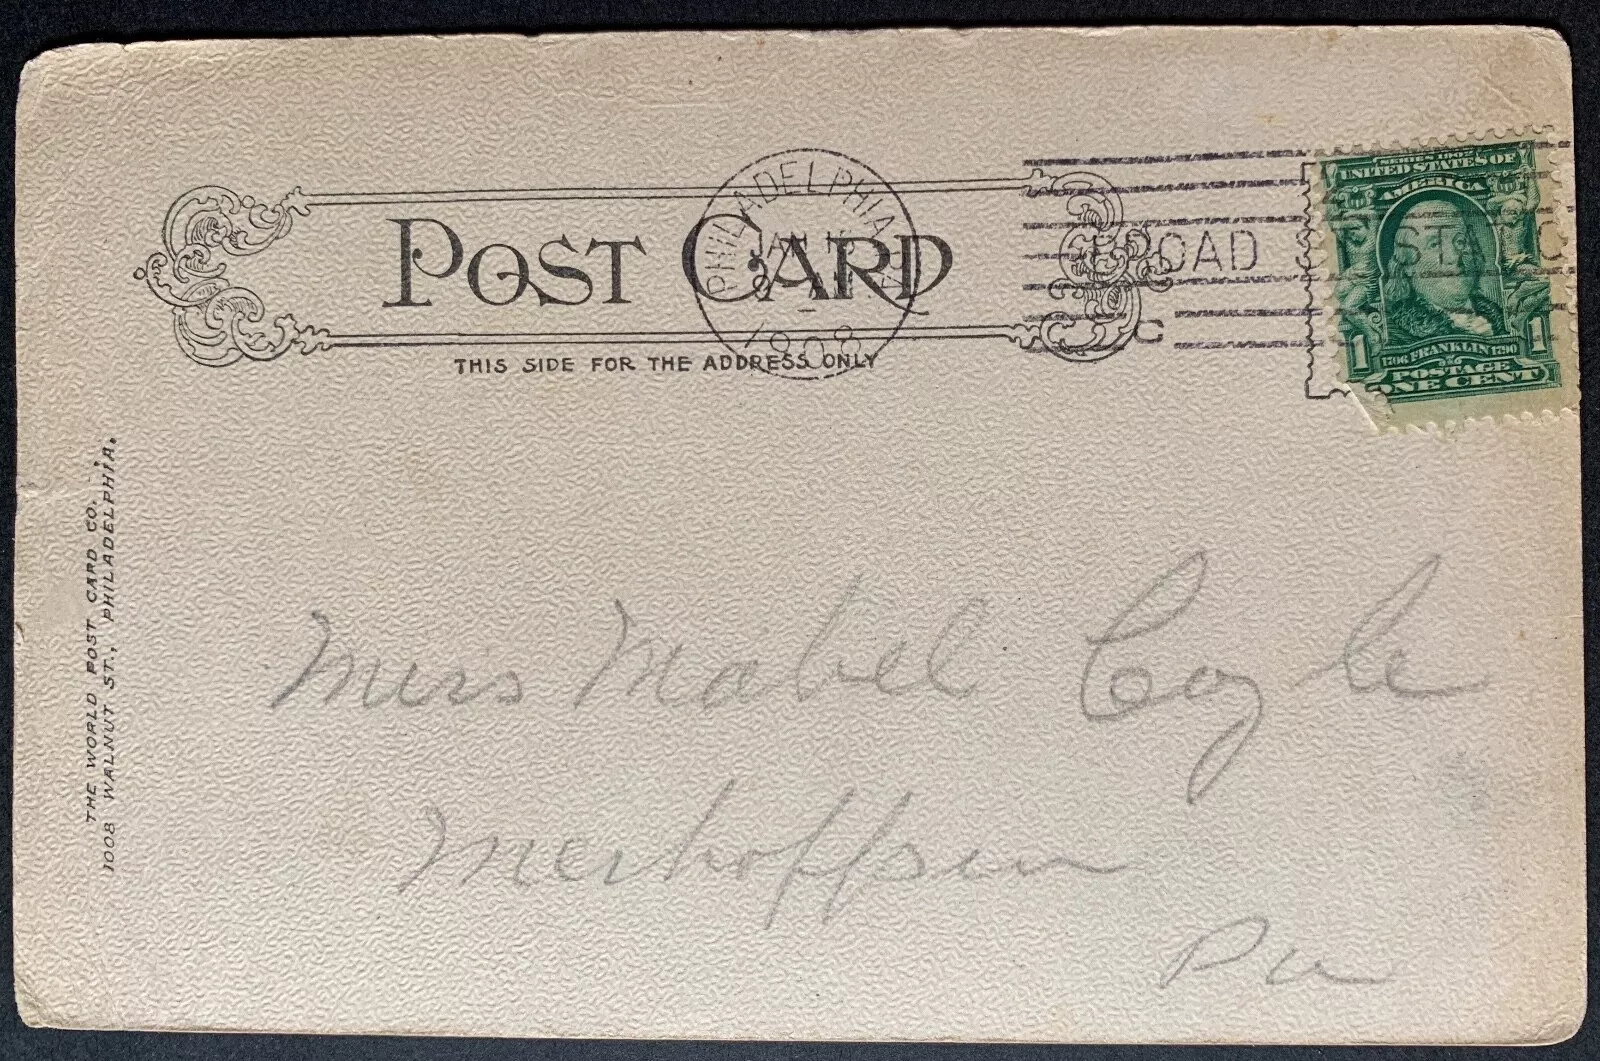 POST CARD
THIS SIDE FOR THE ADDRESS ONLY
PHILADELPHIA, PA.
JAN
1908
OAD ST. STA.
C
SERIES 1902
UNITED STATES OF
AMERICA
1706 FRANKLIN 1790
1 1
POSTAGE
ONE CENT
THE WORLD POST CARD CO.
1008 WALNUT ST., PHILADELPHIA.
Miss Mabel Coyle
Pa